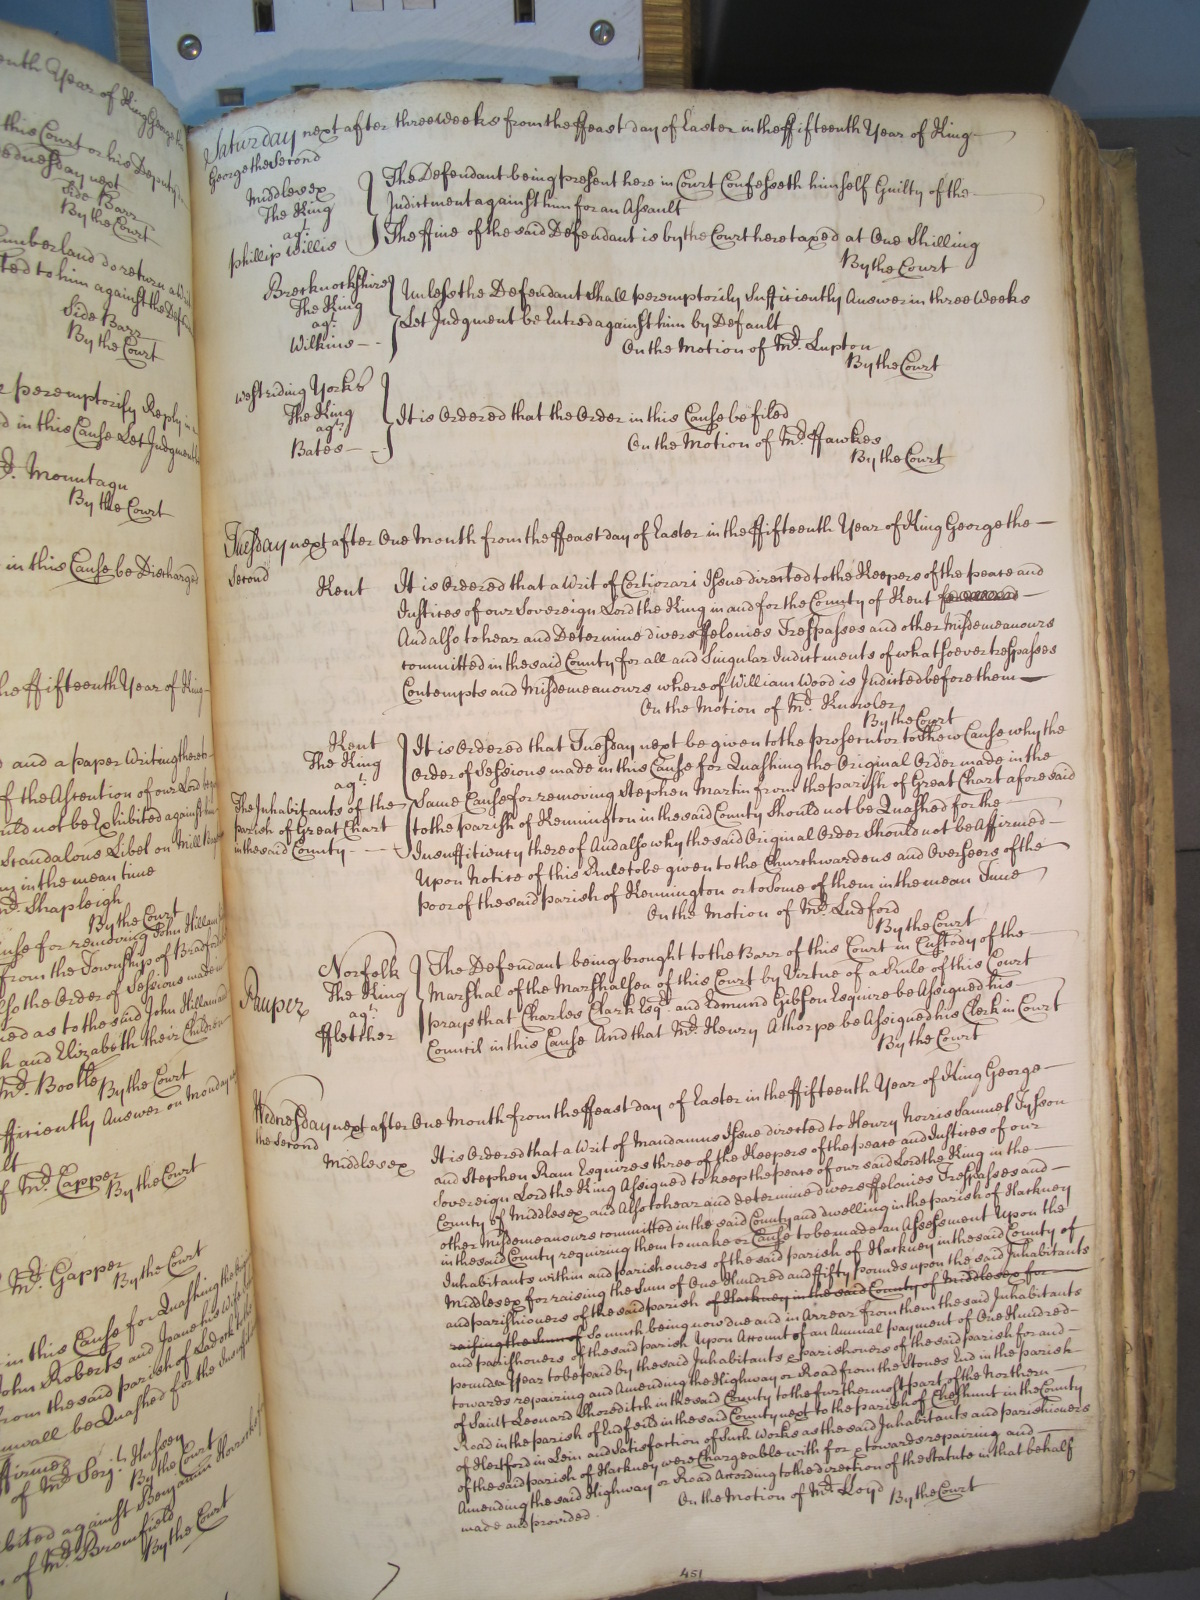 enth Year of King George the
this Court or his Deputy
ednesday next
Side Barr
By the Court
umberland do return a
ted to him against the Def
Side Barr
By the Court
e peremptorily Reply in
d in this Cause Let Judgment
Mr. Mountagu
By the Court
in this Cause be Discharged
he ffifteenth Year of King
d and a paper Writing thereto
f the Attention of our Lord
uld not be Exhibited against
Scandalous Libel on Mill
in the mean time
Mr. Shapleigh
By the Court
use for removing John Hillam
from the Township of Bradford
so the Order of Sessions made
ned as to the said John Hillam and
h and Elizabeth their Children
Mr. Bootle
By the Court
fficiently Answer on Monday
lt
f Mr. Capper
By the Court
Mr. Gapper
By the Court
in this Cause for Quashing the
John Roberts and Joane his Wife
from the said parish of Ladock
nwall be Quashed for the Insuff
ffirmed
of Mr. Serjt. Hussey
By the Court
bited against Benjamin
of Mr. Bromfield
By the Court
Saturday next after three Weeks from the ffeast day of Easter in the ffifteenth Year of King
George the Second
Middlesex
The King
agt.
phillip Willis
The Defendant being present here in Court Confesseth himself Guilty of the
Indictment against him for an Assault
The ffine of the said Defendant is by the Court here taxed at One Shilling
By the Court
Brecknockshire
The King
agt.
Wilkins
Unless the Defendant Shall peremptorily Sufficiently Answer in three Weeks
Let Judgment be Entred against him by Default
On the Motion of Mr. Lupton
By the Court
West riding Yorks
The King
agt.
Bates
It is Ordered that the Order in this Cause be filed
On the Motion of Mr. ffawkes
By the Court
Tuesday next after One Month from the ffeast day of Easter in the ffifteenth Year of King George the
Second
Kent
It is Ordered that a Writ of Certiorari Issue directed to the Keepers of the peace and
Justices of our Sovereign Lord the King in and for the County of Kent
And also to hear and Determine divers ffelonies Trespasses and other Misdemeanours
committed in the said County for all and Singular Indictments of whatsoever trespasses
Contempts and Misdemeanours whereof William Wood is Indicted before them
On the Motion of Mr. Knowler
By the Court
Kent
The King
agt.
The Inhabitants of the
parish of Great Chart
in the said County
It is Ordered that Tuesday next be given to the prosecutor to Shew Cause why the
Order of Sessions made in this Cause for Quashing the Original Order made in the
Same Cause for removing Stephen Martin from the parish of Great Chart aforesaid
to the parish of Kennington in the said County Should not be Quashed for the
Insufficiency thereof And also why the said Original Order Should not be Affirmed
Upon Notice of this Rule to be given to the Churchwardens and Overseers of the
poor of the said parish of Kennington or to Some of them in the mean Time
On the Motion of Mr. Ludford
By the Court
Pauper
Norfolk
The King
agt.
ffletcher
The Defendant being brought to the Barr of this Court in Custody of the
Marshal of the Marshalsea of this Court by Virtue of a Rule of this Court
prays that Charles Clark Esqr. and Edmund Gibson Esquire be Assigned his
Council in this Cause And that Mr. Henry Athorpe be Assigned his Clerk in Court
By the Court
Wednesday next after One Month from the ffeast day of Easter in the ffifteenth Year of King George
the Second
Middlesex
It is Ordered that a Writ of Mandamus Issue directed to Henry Norris Samuel Tysson
and Stephen Ram Esquires three of the Keepers of the peace and Justices of our
Sovereign Lord the King Assigned to keep the peace of our said Lord the King in the
County of Middlesex and Also to hear and determine divers ffelonies Trespasses and
other Misdemeanours committed in the said County and dwelling in the parish of Hackney
in the said County requiring them to make or Cause to be made an Assessment Upon the
Inhabitants within and parishioners of the said parish of Hackney in the said County of
Middlesex for raising the Sum of One Hundred and ffifty pounds upon the said Inhabitants
and parishioners of the said parish of Hackney in the said County of Middlesex for
raising the Sum of So much being now due and in Arrear from them the said Inhabitants
and parishioners of the said parish Upon Account of an Annual payment of One Hundred
pounds a Year to be paid by the said Inhabitants & parishoners of the said parish for and
towards repairing and Amending the Highway or Road from the Stones End in the parish
of Saint Leonard Shoreditch in the said County to the furthermost part of the Northern
Road in the parish of Endfeild in the said County next to the parish of Cheshunt in the County
of Hertford in Lein and Satisfaction of Such Works as the said Inhabitants and parishioners
of the said parish of Hackney were Chargeable with for & towards repairing and
Amending the said Highway or Road According to the direction of the Statute in that behalf
made and provided.
On the Motion of Mr. Lloyd
By the Court
451